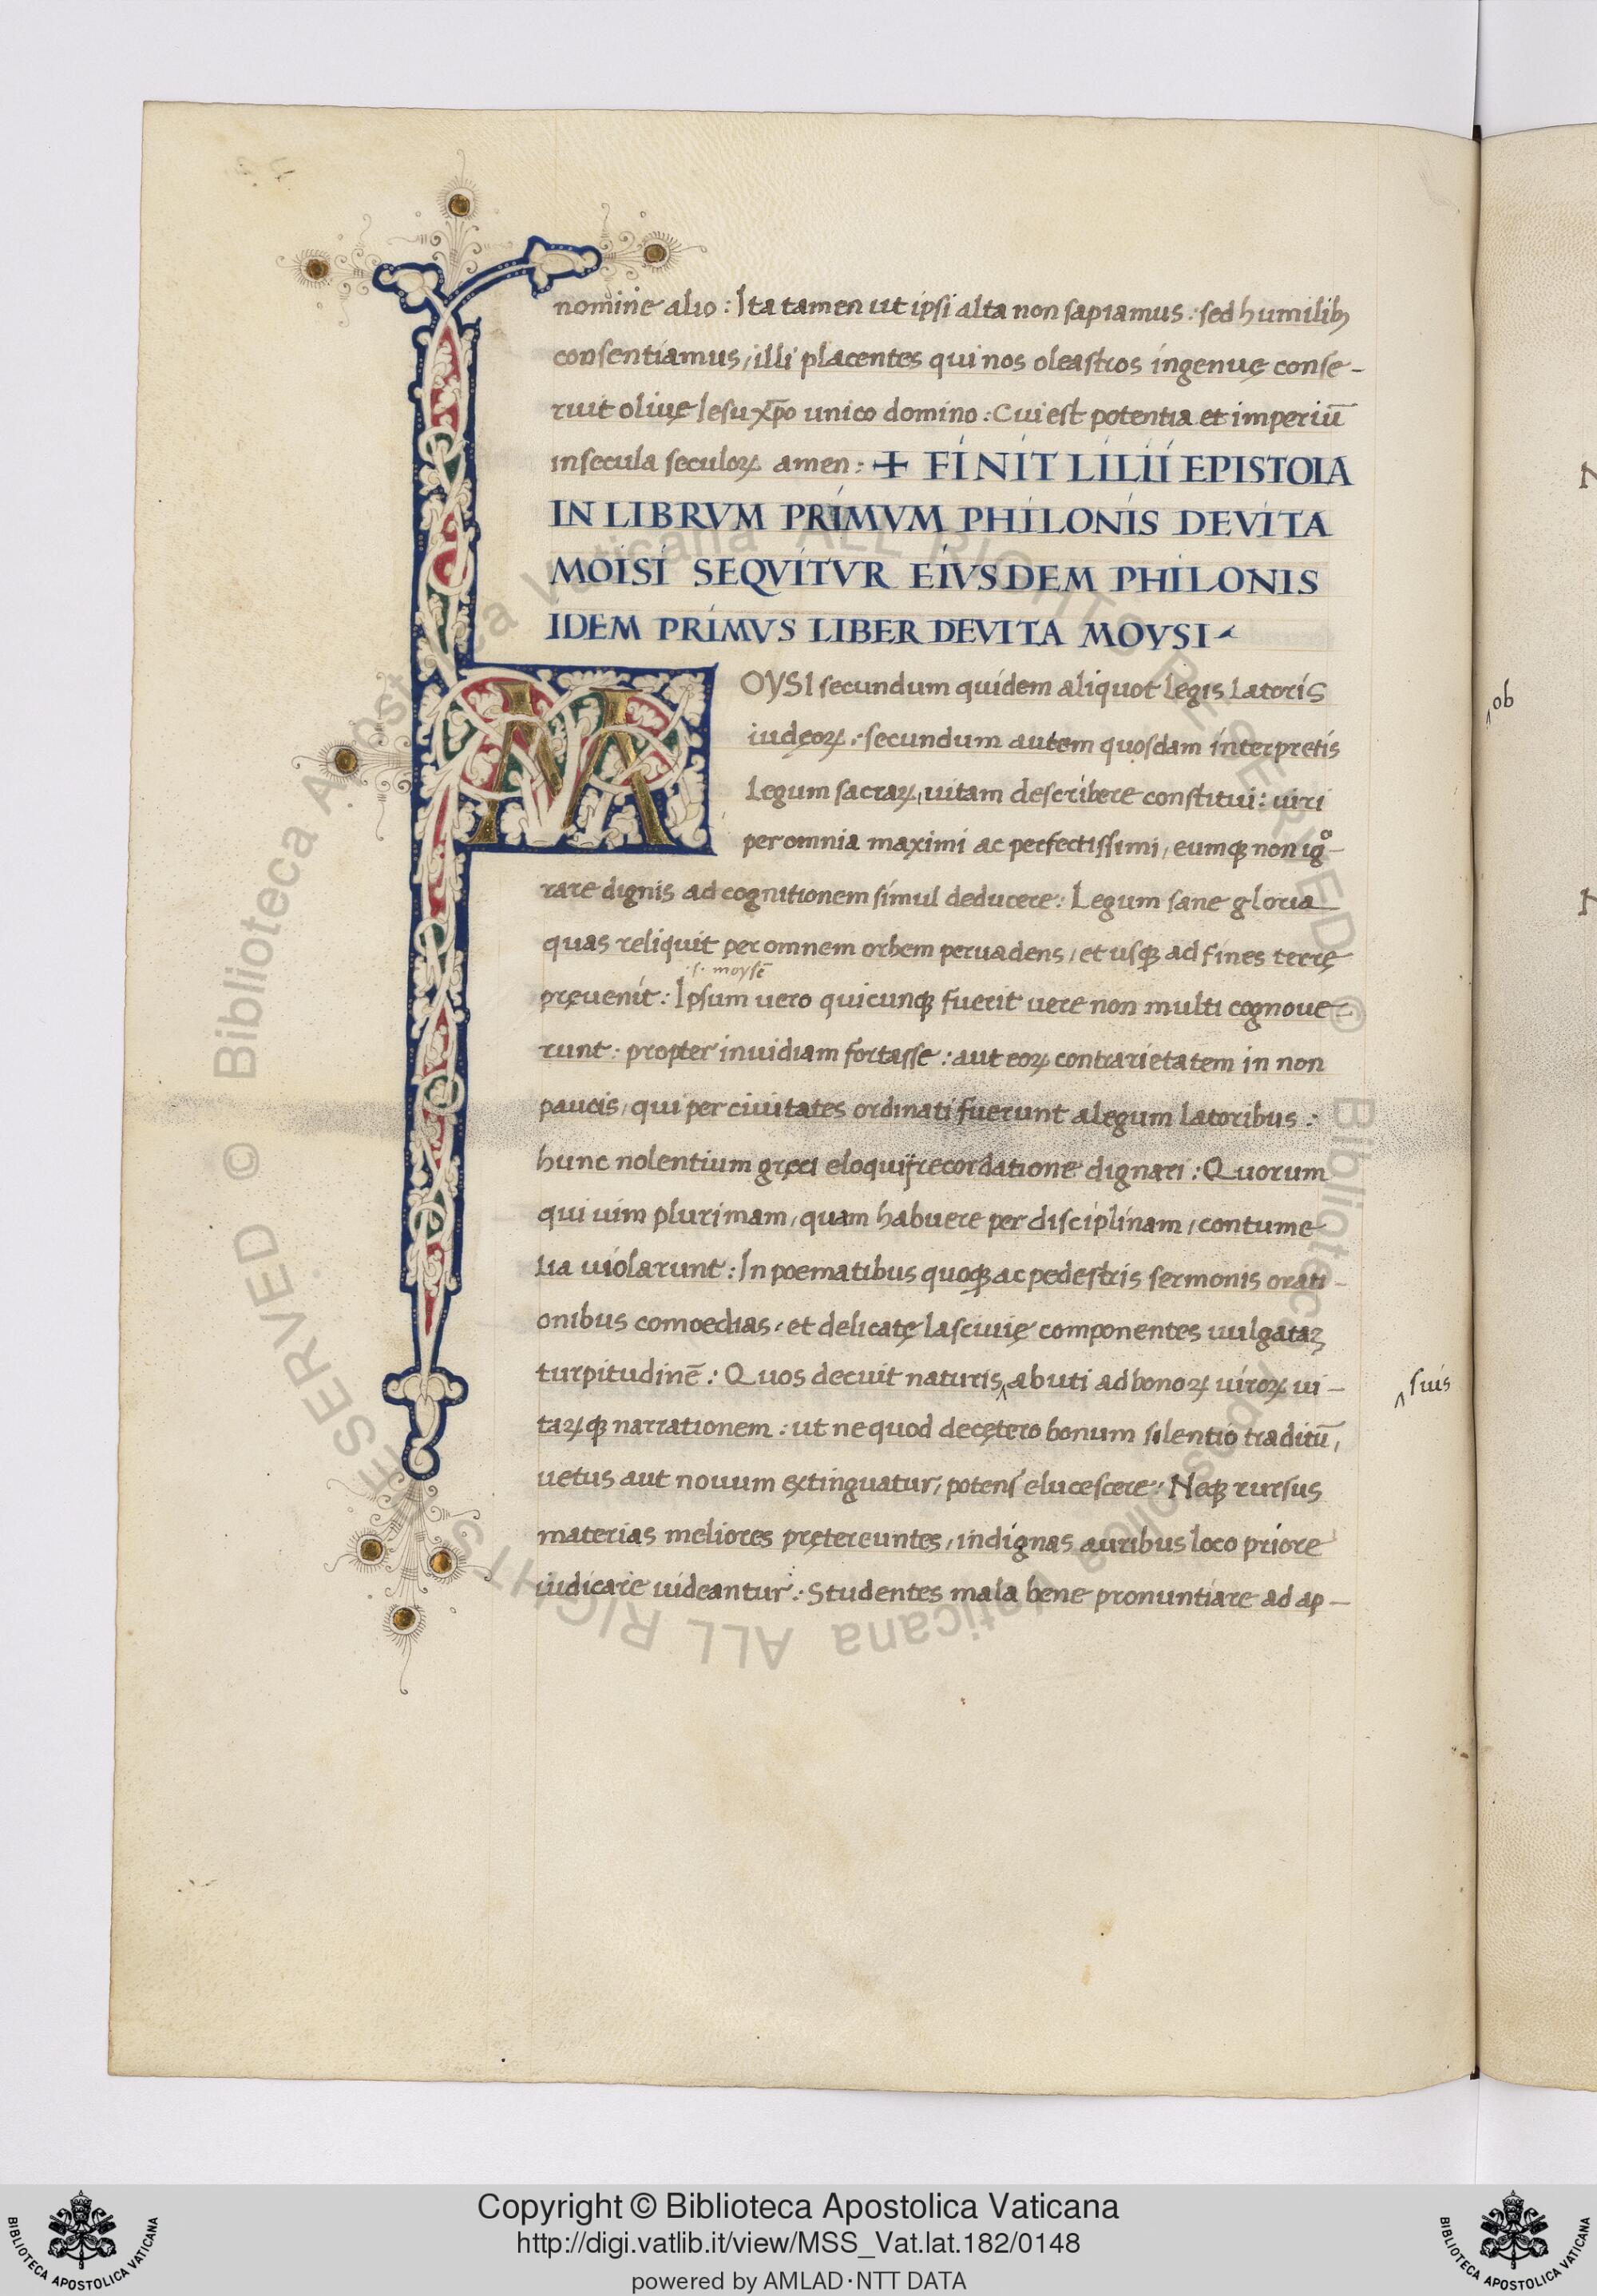 nomine alio : Ita tamen ut ipsi alta non sapiamus : sed humilibꝫ
consentiamus, illi placentes qui nos oleastros ingenuę conse-
ruit oliuę Iesu xp̄o unico domino : Cui est potentia et imperiū
in secula seculoꝝ amen : + FINIT LILII EPISTOLA
IN LIBRVM PRIMVM PHILONIS DE VITA
MOISI SEQVITVR EIVSDEM PHILONIS
IDEM PRIMVS LIBER DE VITA MOYSI
MOYSI secundum quidem aliquot legis latoris
iudęoꝝ : secundum autem quosdam interpretis
legum sacraꝝ, uitam describere constitui : uiri
per omnia maximi ac perfectissimi, eumqꝫ non igº-
rare dignis ad cognitionem simul deducere : Legum sane gloria
quas reliquit per omnem orbem peruadens, et usqꝫ ad fines terrę
.s. moysē
pręuenit : Ipsum uero quicunqꝫ fuerit uere non multi cognoue-
runt : propter inuidiam fortasse : aut eoꝝ contrarietatem in non
paucis, qui per ciuitates ordinati fuerunt a legum latoribus :
hunc nolentium gręci eloquij recordatione dignari : Quorum
qui uim plurimam, quam habuere per disciplinam, contume
lia uiolarunt : In poematibus quoqꝫ ac pedestris sermonis orati-
onibus comoedias, et delicatę lasciuię componentes uulgataꝫ
turpitudinē : Quos decuit naturis ^ abuti ad bonoꝝ uiroꝝ ui-
^ suis
taꝝqꝫ narrationem : ut ne quod decętero bonum silentio traditū,
uetus aut nouum extinguatur, potens elucescere : Neqꝫ rursus
materias meliores prętereuntes, indignas auribus loco priore
iudicare uideantur : Studentes mala bene pronuntiare ad ap-
^ ob
N
N
© Biblioteca Apostolica Vaticana ALL RIGHTS RESERVED © Biblioteca Apostolica Vaticana ALL RIGHTS RESERVED
Copyright © Biblioteca Apostolica Vaticana
http://digi.vatlib.it/view/MSS_Vat.lat.182/0148
powered by AMLAD·NTT DATA
BIBLIOTECA APOSTOLICA VATICANA
BIBLIOTECA APOSTOLICA VATICANA